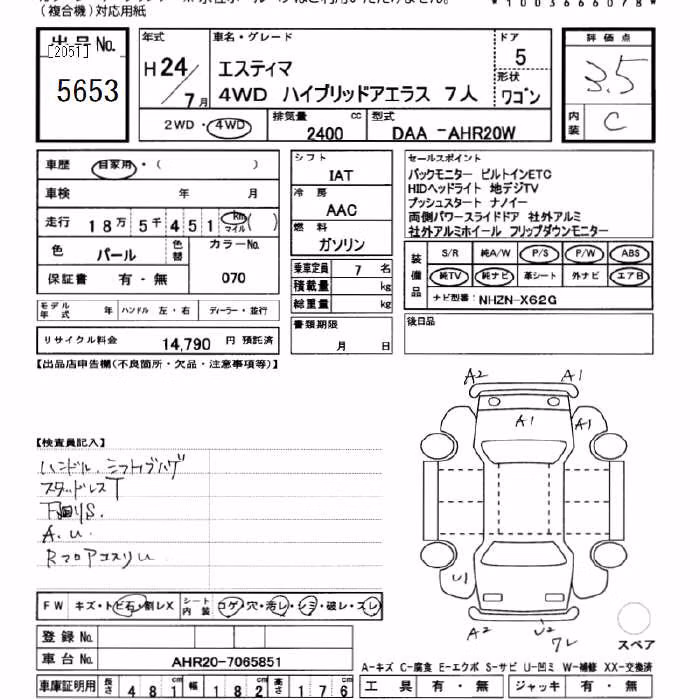 (複合機)対応用紙
*1003666078*
出品No.
[2051]
5653
年式
H24/7月
車名・グレード
エスティマ
4WD ハイブリッドアエラス 7人
ドア
5
形状
ワゴン
評価点
3.5
内装
C
2WD・4WD
排気量
2400
cc
型式
DAA -AHR20W
車歴
自家用・( )
車検
年 月
走行
18万5千451
km
マイル
( )
色
パール
色替
カラーNo.
070
保証書
有・無
シフト
IAT
冷房
AAC
燃料
ガソリン
乗車定員
7 名
積載量
kg
総重量
kg
セールスポイント
バックモニター ビルトインETC
HIDヘッドライト 地デジTV
プッシュスタート ナノイー
両側パワースライドドア 社外アルミ
社外アルミホイール フリップダウンモニター
装備品
S/R 純A/W P/S P/W ABS
純TV 純ナビ 革シート 外ナビ エアB
ナビ型番: NHZN-X62G
モデル年式
年
ハンドル 左・右
ディーラー・並行
リサイクル料金
14,790 円 預託済
書類期限
月 日
後日品
【出品店申告欄(不良箇所・欠品・注意事項等)】
【検査員記入】
ハンドル、シフトノブハゲ
スタッドレスT
下回りS.
A.U.
A2
A1
A1
A1
U1
A2
U2
スペア
FW
キズ・トビ石・割レX
シート内装
コゲ・穴・汚レ・シミ・破レ・スレ
登録No.
車台No.
AHR20-7065851
車庫証明用
長さ
481
cm
幅
182
cm
高さ
176
cm
A-キズ C-腐食 E-エクボ S-サビ U-凹ミ W-補修 XX-交換済
工具
有・無
ジャッキ
有・無